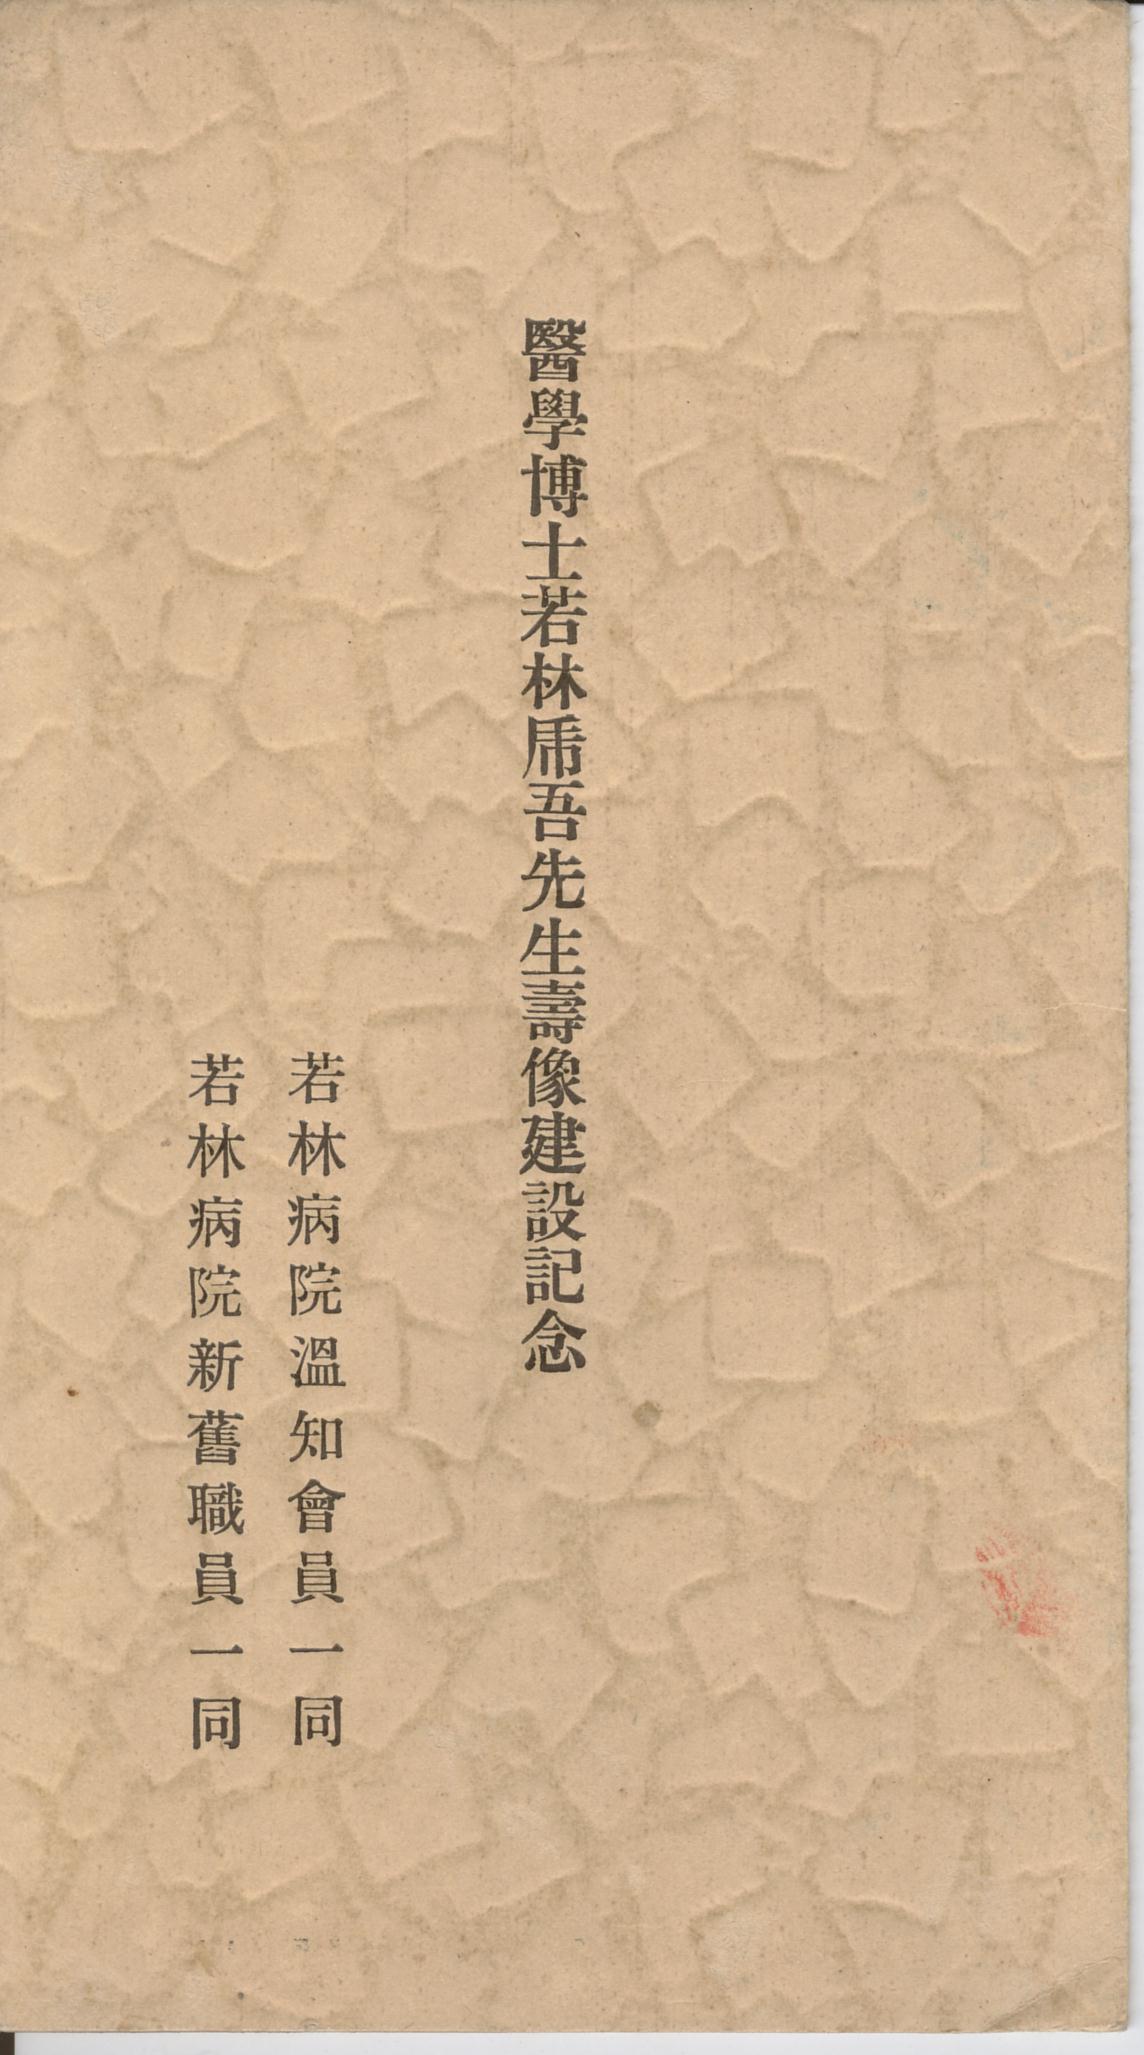 醫學博士若林乕吾先生壽像建設記念
若林病院溫知會員一同
若林病院新舊職員一同